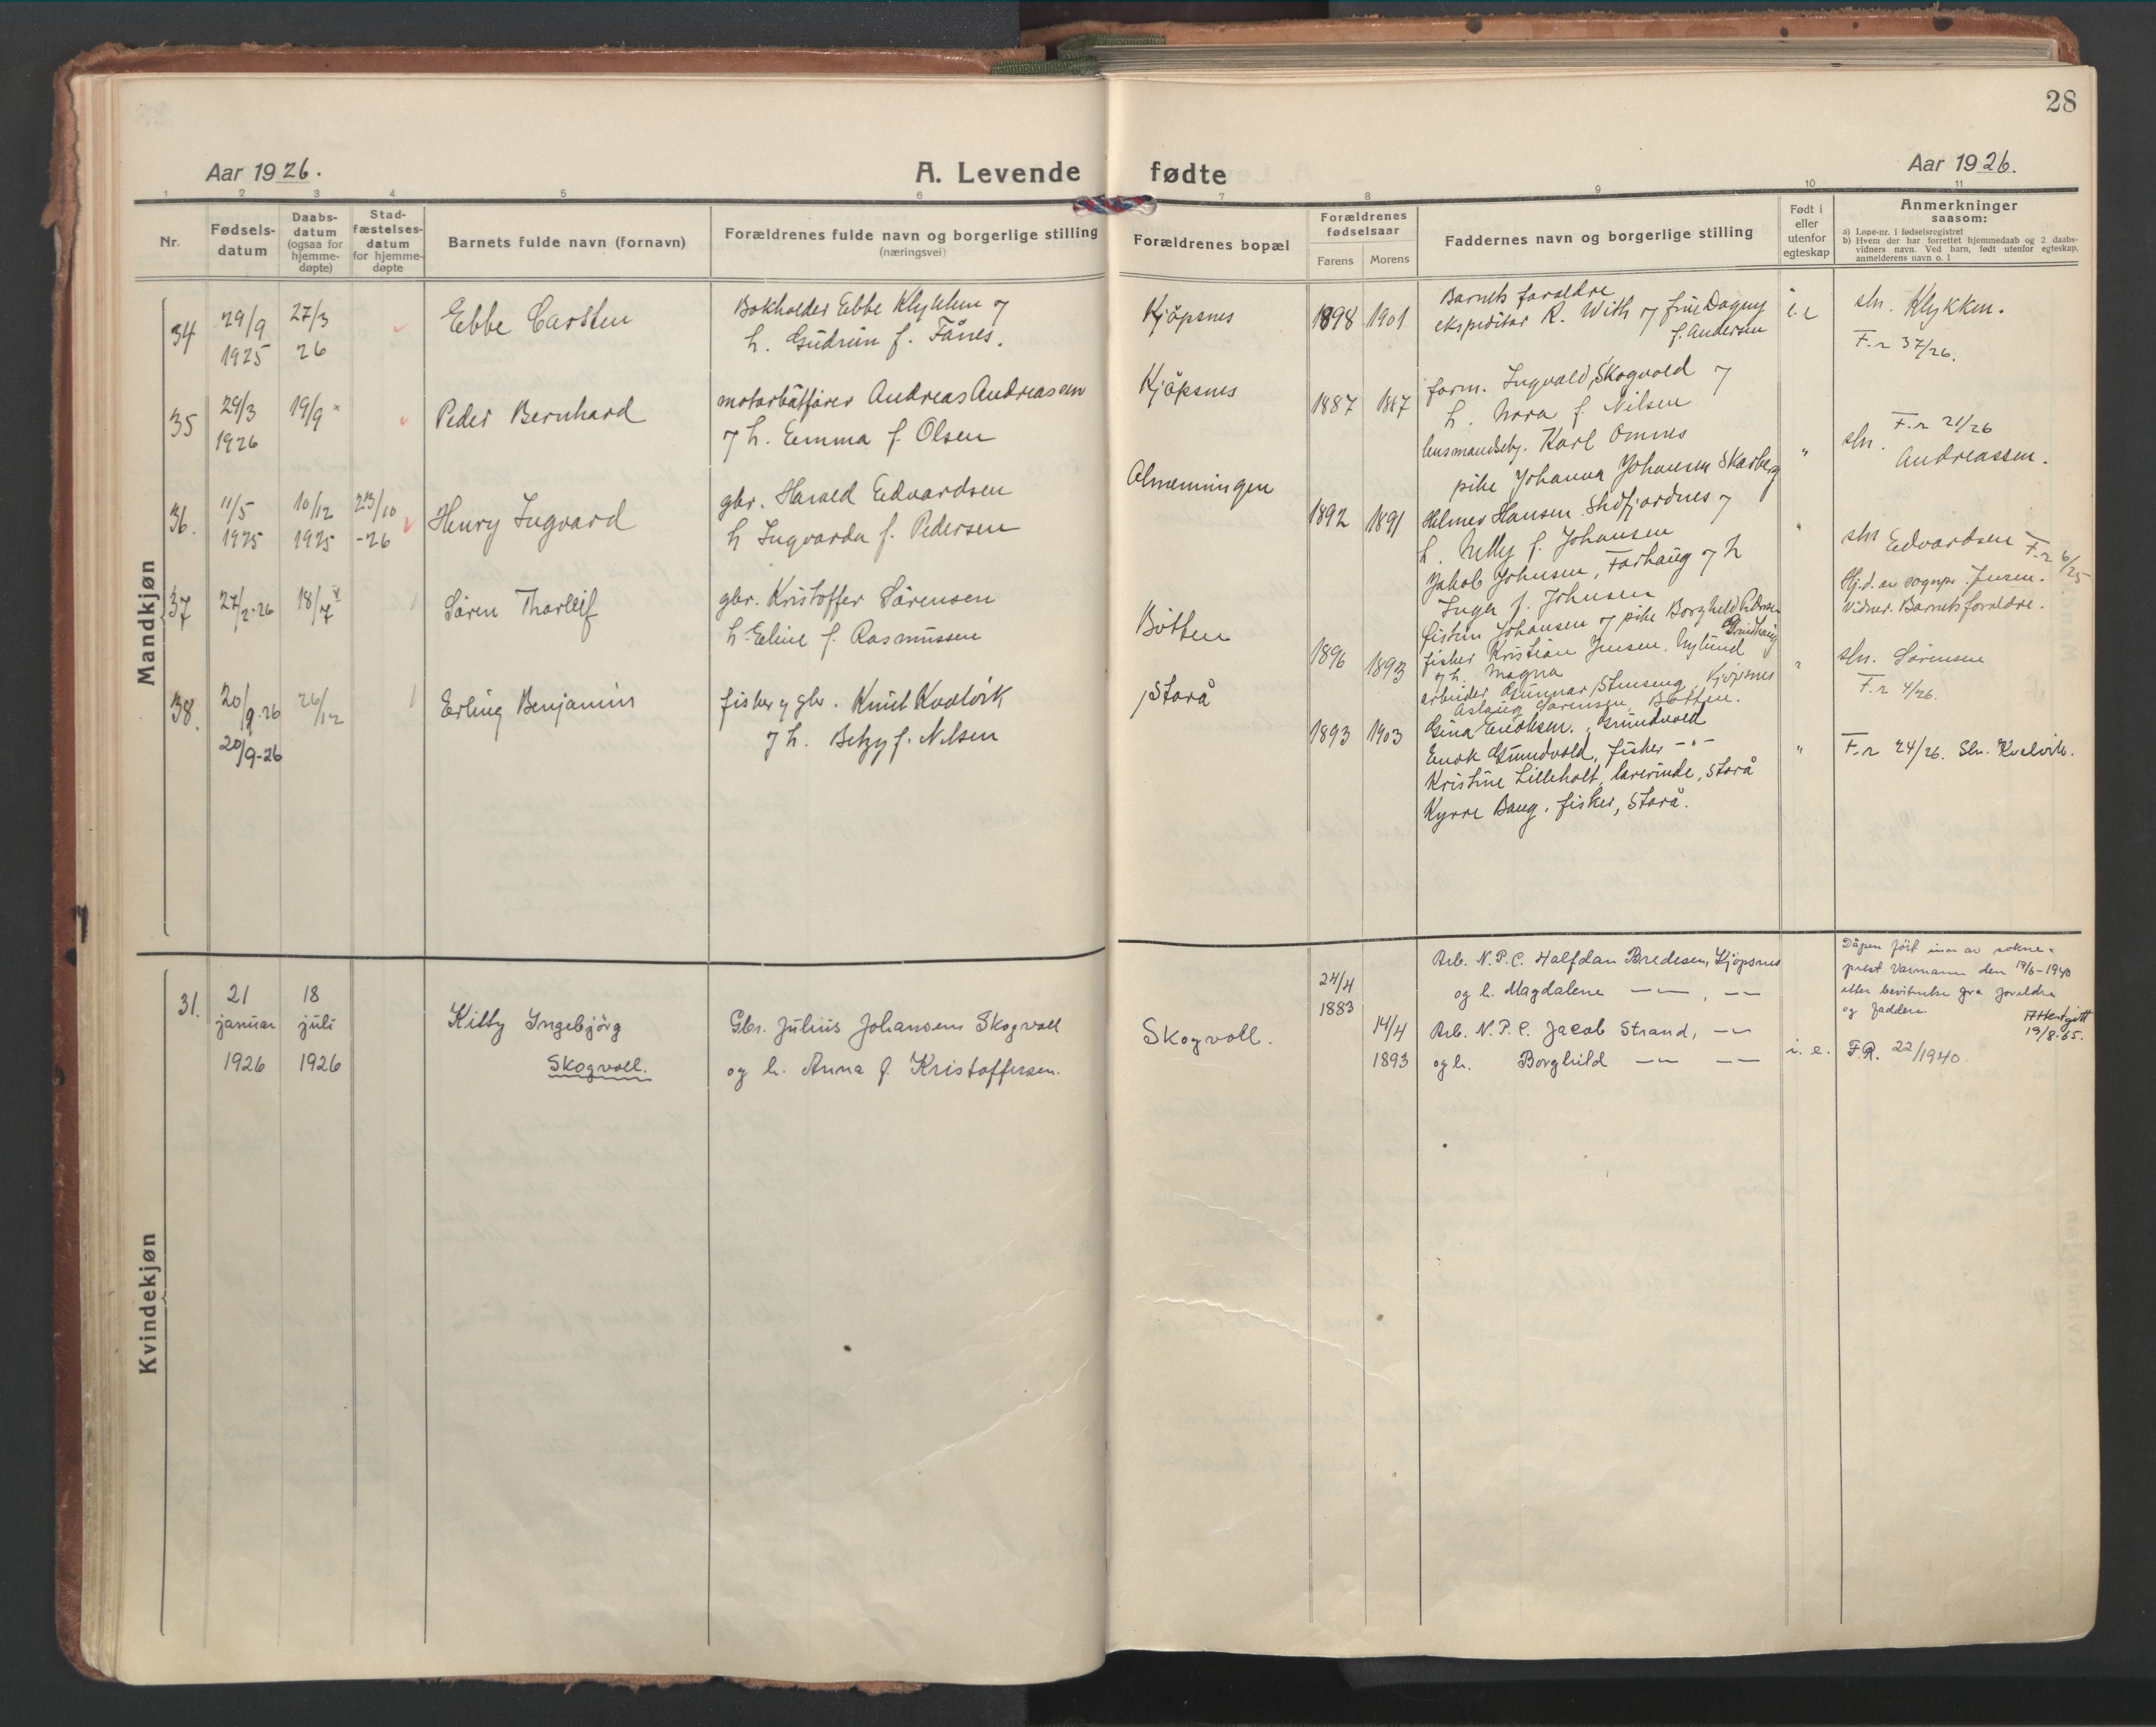 28
Aar 1926.
A. Levende fødte
Aar 1926.
1 2 3 4 5 6 7 8 9 10 11
Nr.
Fødsels-
datum
Daabs-
datum
(ogsaa for
hjemme-
døpte)
Stad-
fæstelses-
datum
for hjemme-
døpte
Barnets fulde navn (fornavn)
Forældrenes fulde navn og borgerlige stilling
(næringsvei)
Forældrenes bopæl
Forældrenes
fødselsaar
Farens Morens
Faddernes navn og borgerlige stilling
Født i
eller
utenfor
egteskap
Anmerkninger
saasom:
a) Løpe-nr. i fødselsregistret
b) Hvem der har forrettet hjemmedaab og 2 daabs-
vidners navn. Ved barn, født utenfor egteskap,
anmelderens navn o. l
Mandkjøn
34
29/9
1925
27/3
26
Ebbe Carsten
Bokholder Ebbe Klykken og
h. Gudrun f. Fånes.
Kjøpsnes
1898 1901
Barnets foreldre
ekspeditør R. With og frue Dagny
f. Andersen
i. e
sln. Klykken.
F.r 37/26.
35
29/3
1926
19/9
Peder Bernhard
motorbåtfører Andreas Andreassen
og h. Emma f. Olsen
Kjøpsnes
1887 1887
form. Ingvald Skogvold og
h. Nora f. Nilsen
lensmandsbtj. Karl Omnes
pike Johanna Johansen Skarberg
"
F.r 21/26
sln.
Andreassen.
36.
11/5
1925
10/12
1925
23/10
-26
Henry Ingvard
gbr. Harald Edvardsen
h Ingvarda f. Pedersen
Almenningen
1892 1891
Helmer Hansen Skdfjordnes og
h. Nelly f. Johansen
Jakob Johnsen, Forhaug og h
Inga f. Johnsen
"
sln Edvardsen F.r 6/25
Hj.d. av sognepr. Jensen.
Vidner. Barnets foreldre.
37
27/2-26
18/7
Søren Thorleif
gbr. Kristoffer Sørensen
h. Eline f. Rasmussen
Bøtten
1896 1893
Johansen og pike Borghild Pedersen
fisker Kristian Jensen, Nylund
og h. Magna
arbeider Gunnar Stenseng, Kjøpsnes
Aslaug Sørensen, Bøtten.
"
sln. Sørensen
F.r 4/26.
38.
20/9-26
20/9-26
26/12
Erling Benjamin
fisker og gbr. Knut Kvalvik
og h. Betzy f. Nilsen
Storå
1893 1903
Gina Enoksen, Grundvold
Enok Grundvold, fisker -"-
Kristine Lilleholt, lærerinde, Storå
Kyrre Baug, fisker, Storå.
"
F.r 24/26. Sln. Kvalvik.
Kvindekjøn
31.
21
januar
1926
18
juli
1926
Kitty Ingebjørg
Skogvoll.
Gbr. Julius Johansen Skogvoll
og h. Anna f. Kristoffersen.
Skogvoll.
24/4
1883
14/4
1893
Arb. N.P.C. Halfdan Bredesen, Kjøpsnes
og h. Magdalene —"—, —"—
Arb. N.P.C. Jacob Strand, —"—
og h. Borghild —"— —"—
i. e.
Dåpen ført inn av sokne-
prest Varmann den 19/6-1940
etter bevitnelse fra foreldre
og faddere.
19/8-65.
F.R. 22/1940.